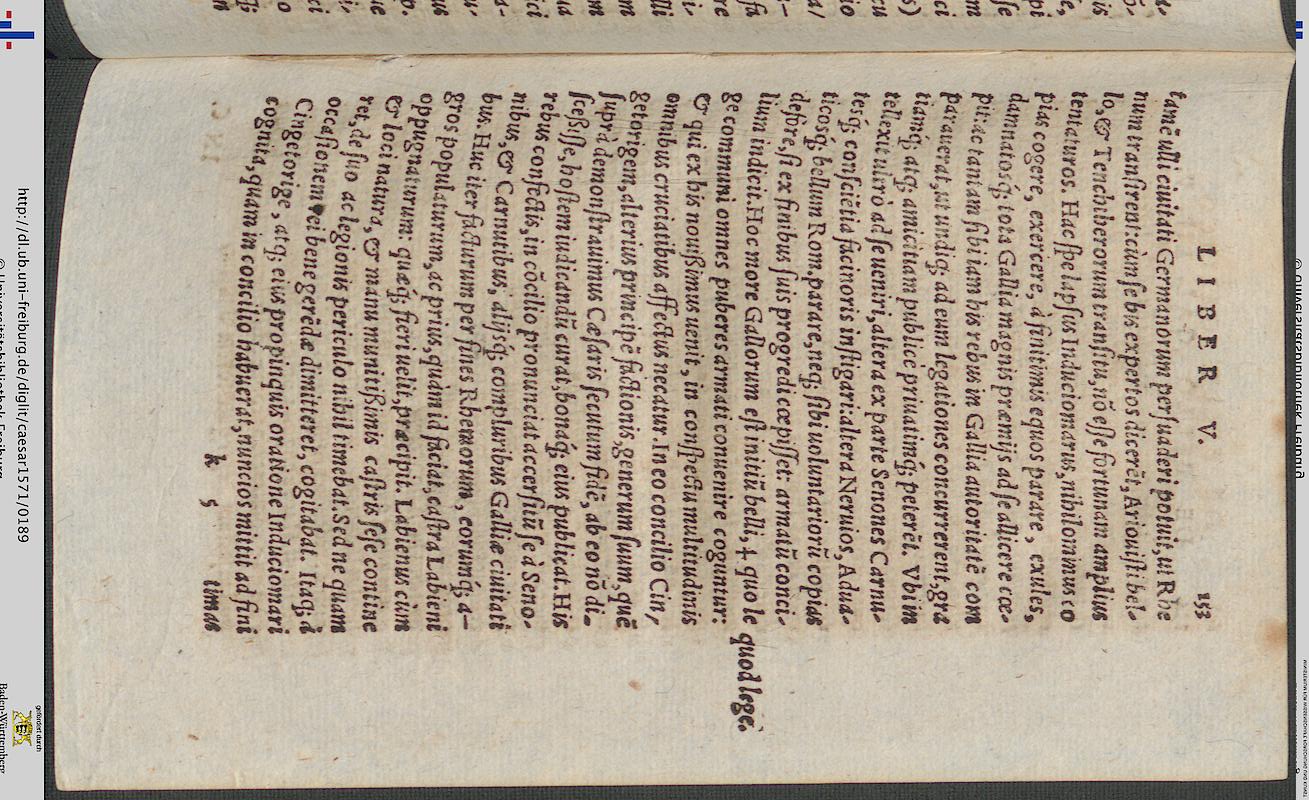 LIBER V. 153
tamē ulli ciuitati Germanorum persuaderi potuit, ut Rhe
num transirent: cùm se bis expertos dicerēt, Ariouisti bel-
lo, & Tenchtherorum transitu, nō esse fortunam amplius
tentaturos. Hac spe lapsus Induciomarus, nihilominus co
pias cogere, exercere, à finitimis equos parare, exules,
damnatosq́; tota Gallia magnis præmijs ad se allicere cœ-
pit: ac tantam sibi iam his rebus in Gallia autoritatē com
parauerat, ut undiq; ad eum legationes concurrerent, gra
tiamq́; atq; amicitiam publicè priuatimq́; peterēt. Vbi in
tellexit ultrò ad se ueniri, altera ex parte Senones Carnu-
tesq́; consciētia facinoris instigari: altera Neruios, Adua-
ticosq́; bellum Rom. parare, neq; sibi uoluntariorū copias
defore, si ex finibus suis progredi cœpisset: armatū conci-
lium indicit. Hoc more Gallorum est initiū belli, ⸸ quo le
ge communi omnes puberes armati conuenire coguntur:
& qui ex his nouißimus uenit, in conspectu multitudinis
omnibus cruciatibus affectus necatur. In eo concilio Cin,
getorigem, alterius principē factionis, generum suum, quē
suprà demonstrauimus Cæsaris secutum fidē, ab eo nō di-
sceßisse, hostem iudicandū curat, bonaq́; eius publicat. His
rebus confectis, in cōcilio pronunciat accersitū se à Seno-
nibus, & Carnutibus, alijsq́; compluribus Galliæ ciuitati
bus. Huc iter facturum per fines Rhemorum, eorumq́; a-
gros populaturum, ac prius, quàm id faciat, castra Labieni
oppugnaturum: quæq́; fieri uelit, præcipit. Labienus cùm
& loci natura, & manu munitißimis castris sese contine
ret, de suo ac legionis periculo nihil timebat. Sed ne quam
occasionem rei bene gerēdæ dimitteret, cogitabat. Itaq; à
Cingetorige, atq; eius propinquis oratione Induciomari
cognita, quam in concilio habuerat, nuncios mittit ad fini
k 5 timas
quod lege.
http://dl.ub.uni-freiburg.de/diglit/caesar1571/0189
© Universitätsbibliothek Freiburg
gefördert durch
Baden-Württemberg